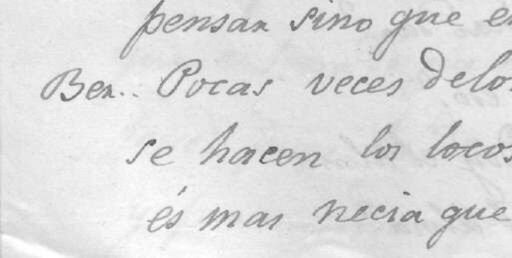 pensar sino que e
Ber.. Pocas veces delo
se hacen los locos
és mas necia que